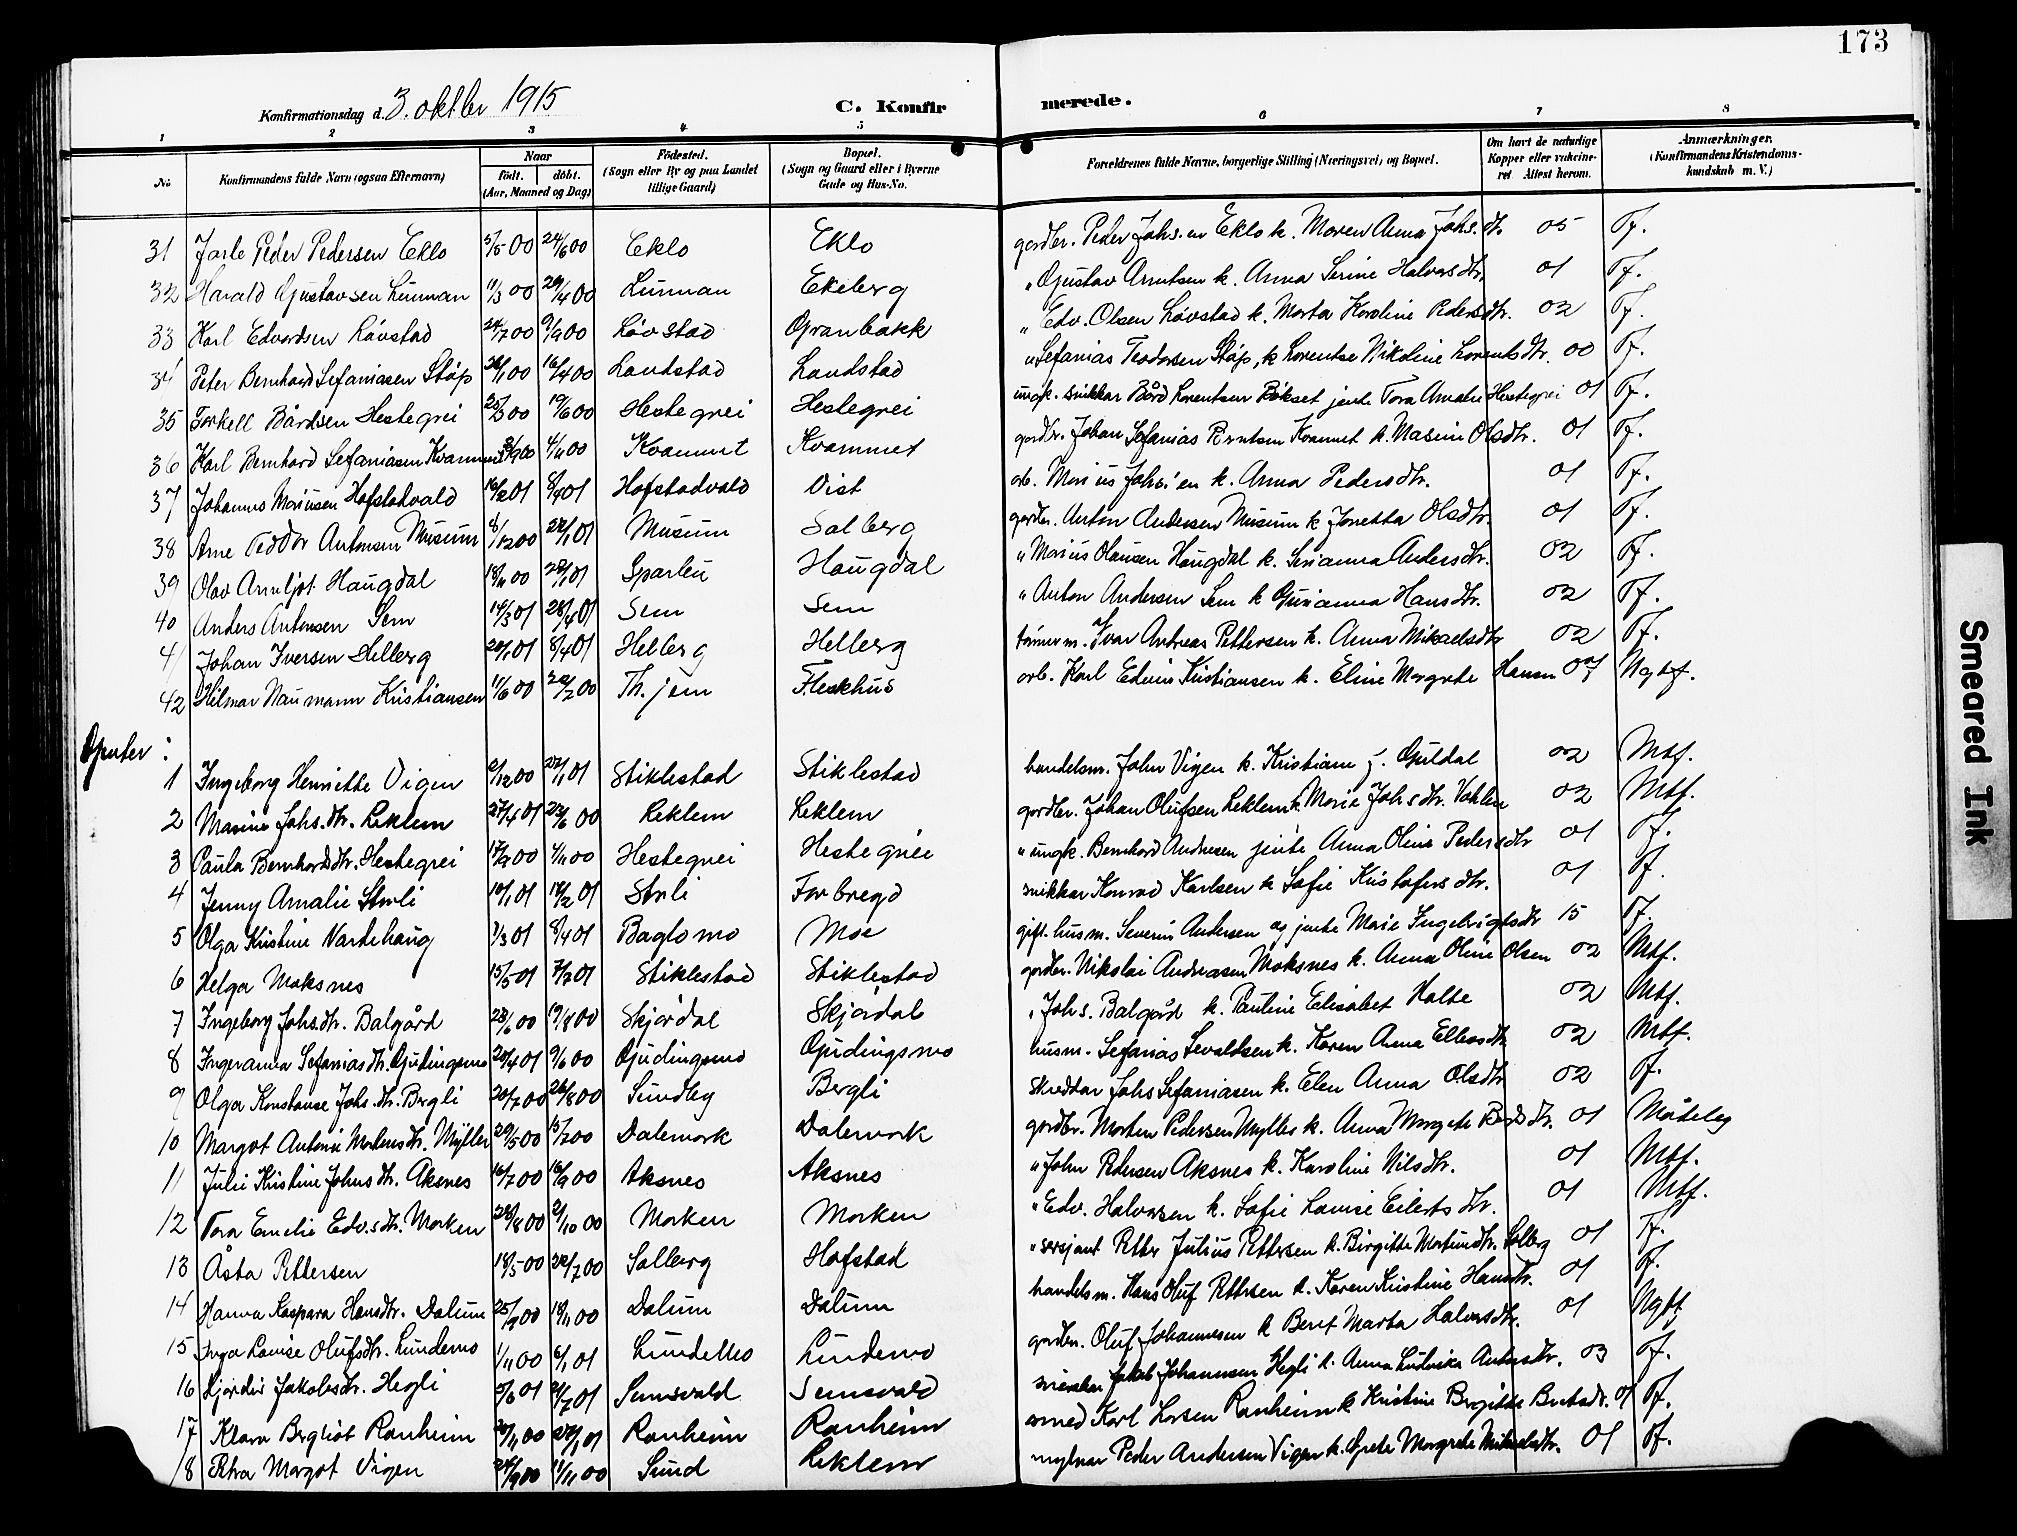 173
Konfirmationsdag d. 3. oktbr 1915
C. Konfirmerede.
1 2 3 4 5 6 7 8
No
Konfirmandens fulde Navn (ogsaa Efternavn)
Naar
født. døbt.
(Aar, Maaned og Dag)
Fødested.
(Sogn eller By og paa Landet tillige Gaard)
Bopæl.
(Sogn og Gaard eller i Byerne Gade og Hus-No.
Forældrenes fulde Navne, borgerlige Stilling (Næringsvei) og Bopæl.
Om havt de naturlige Kopper eller vakcineret Attest herom.
Anmærkninger.
(Konfirmandens Kristendomskundskab m. V.)
31 Jarle Peder Pedersen Eklo 5/5 00 24/6 00 Eklo Eklo gardbr. Peder Johs.en Eklo k. Maren Anna Johs.dtr. 05 Tf.
32 Harald Gustavsen Lunnan 11/3 00 29/4 00 Lunnan Ekeberg " Gustav Arntsen k. Anna Serine Halvorsdtr. 01 Tf.
33 Karl Edvardsen Løvstad 24/7 00 9/9 00 Løvstad Granbakk " Edv. Olsen Løvstad k. Marta Karoline Pedersdtr. 02 Tf.
34 Peter Bernhard Sefaniasen Støp 26/1 00 16/4 00 Landstad Landstad " Sefanias Teodorsen Støp, k Lorentse Nikoline Lorentsdtr. 00 Tf.
35 Torkell Bårdsen Hestegrei 25/3 00 19/6 00 Hestegrei Hestegrei ungk. snikkar Bård Lorentsen jente Tora Amalie Hestegrei 01 Tf.
36 Karl Bernhard Sefaniasen Kvammet 4/11 00 Kvammet Kvammet gardbr. Johan Sefanias Berntsen Kvammet k. Masine Olsdtr. 01 Tf.
37 Johannes Mariusen Hofstadvald 16/2 01 8/4 01 Hofstadvald Vist arb. Marius Johs.'en k. Anna Pedersdtr. 01 Tf.
38 Arne Teodor Antonsen Musum 8/12 00 27/1 01 Musum Salberg gardbr. Anton Andersen Musum k Jonetta Olsdtr. 01 Tf.
39 Olav Arnljot Haugdal 18/11 00 Sparbu Haugdal " Marius Olausen Haugdal k. Serianna Andersdtr. 02 Tf.
40 Anders Antonsen Sem 14/3 01 28/4 01 Sem Sem " Anton Andersen Sem k Gurianna Hansdtr. 02 Tf.
41 Johan Iversen Helberg 20/1 01 8/4 01 Helberg Helberg tømmerm. Ivar Andreas Pettersen k. Anna Mikaelsdtr 02 Tf.
42 Hilmar Naumann Kristiansen 11/6 00 22/7 00 Th.jem Fleskhus arb. Karl Edvin Kristiansen k. Eline Margrete Hansen 07 Ngtf.
Gjenter :
1 Ingeborg Henriette Vigen 2/12 00 27/1 01 Stiklestad Stiklestad handelsm. John Vigen k. Kristiane J. Guldal 02 Mtf.
2 Masine Johs.dtr. Leklem 27/4 01 23/6 00 Leklem Leklem gardbr. Johan Olufsen Leklem k. Marie Johsdtr. Vohlen 02 Mtf.
3 Paula Bernhardsdtr. Hestegrei 17/9 00 4/11 00 Hestegrei Hestegrei " ungk. Bernhard Andresen jente Anna Oline Pedersdtr 01 Tf.
4 Jenny Amalie Storli 10/1 01 17/2 01 Storli Forbregd snikkar Konrad Karlsen k Sofie Kristofersdtr. 01 Tf.
5 Olga Kristine Vardehaug 1/3 01 8/4 01 Baglomo Moe gift. husm. Severin Andersen og jente Marie Ingebrigtsdtr 15 Tf.
6 Helga Moksnes 15/5 01 7/7 01 Stiklestad Stiklestad gardbr. Nikolai Andreasen Moksnes k. Anna Oline Olsen 02 Mtf.
7 Ingeborg Johs.dtr. Balgård 23/6 00 19/8 00 Skjørdal Skjørdal " Johs. Balgård k. Pauline Elisabet Holte 02 Mtf.
8 Ingeranna Sefaniasdtr. Gjudingsmo 20/4 01 9/6 00 Gjudingsmo Gjudingsmo husm. Sefanias Sevaldsen k. Karen Anna Ellevsdtr 02 Mtf.
9 Olga Konstanse Johs.dtr. Bergli 20/7 00 26/8 00 Sundby Bergli skreddar Johs Sefaniasen k. Elen Anna Olsdtr 02 Tf.
10 Margot Antonie Mortensdtr. Mytler 20/5 00 15/7 00 Dalemark Dalemark gardbr. Morten Pedersen Mylles k. Anna Margrete 01 Måteleg
11 Julie Kristine Johnsdtr. Aksnes 16/7 00 16/9 00 Aksnes Aksnes " John Pedersen Aksnes k. Karoline Nilsdtr. 01 Mtf.
12 Tora Emelie Edv.sdtr. Morken 28/8 00 2/10 00 Morken Morken " Edv. Halvorsen k. Sofie Lovise Eilertsdtr. 01 Mtf.
13 Åsta Pettersen 18/5 00 22/7 00 Salberg Hofstad " sersjant Petter Julius Pettersen k. Birgitte Mortensdtr. Solberg 01 Tf.
14 Hanna Kaspara Hansdtr. Dalum 25/9 00 18/11 00 Dalum Dalum handelsm. Hans Oluf Pettersen k. Karen Kristine Hansdtr. 01 Tf.
15 Inga Lovise Olufsdtr. Lundemo 1/11 00 6/1 01 Lundemo Lundemo gardbr. Oluf Johannesen k Berit Marta Halvorsdtr. 01 Ngtf
16 Hjørdis Jakobsdtr. Hegli 5/6 01 21/7 01 Semsvald Semsvald Jakob Johannesen Hegli k. Anna Ludvika Andersdtr. 03 Tf.
17 Klara Bergliot Ranheim 20/11 00 27/1 01 Ranheim Ranheim Karl Larsen Ranheim k Kristine Bergitte Berntsdtr. 01 Tf.
18 Petra Margot Vigen 24/9 00 18/11 00 Sund Leklem mylnar Peder Andersen Vigen k. Grete Margrete Mikaelsdtr. 01 Tf.
Smeared Ink